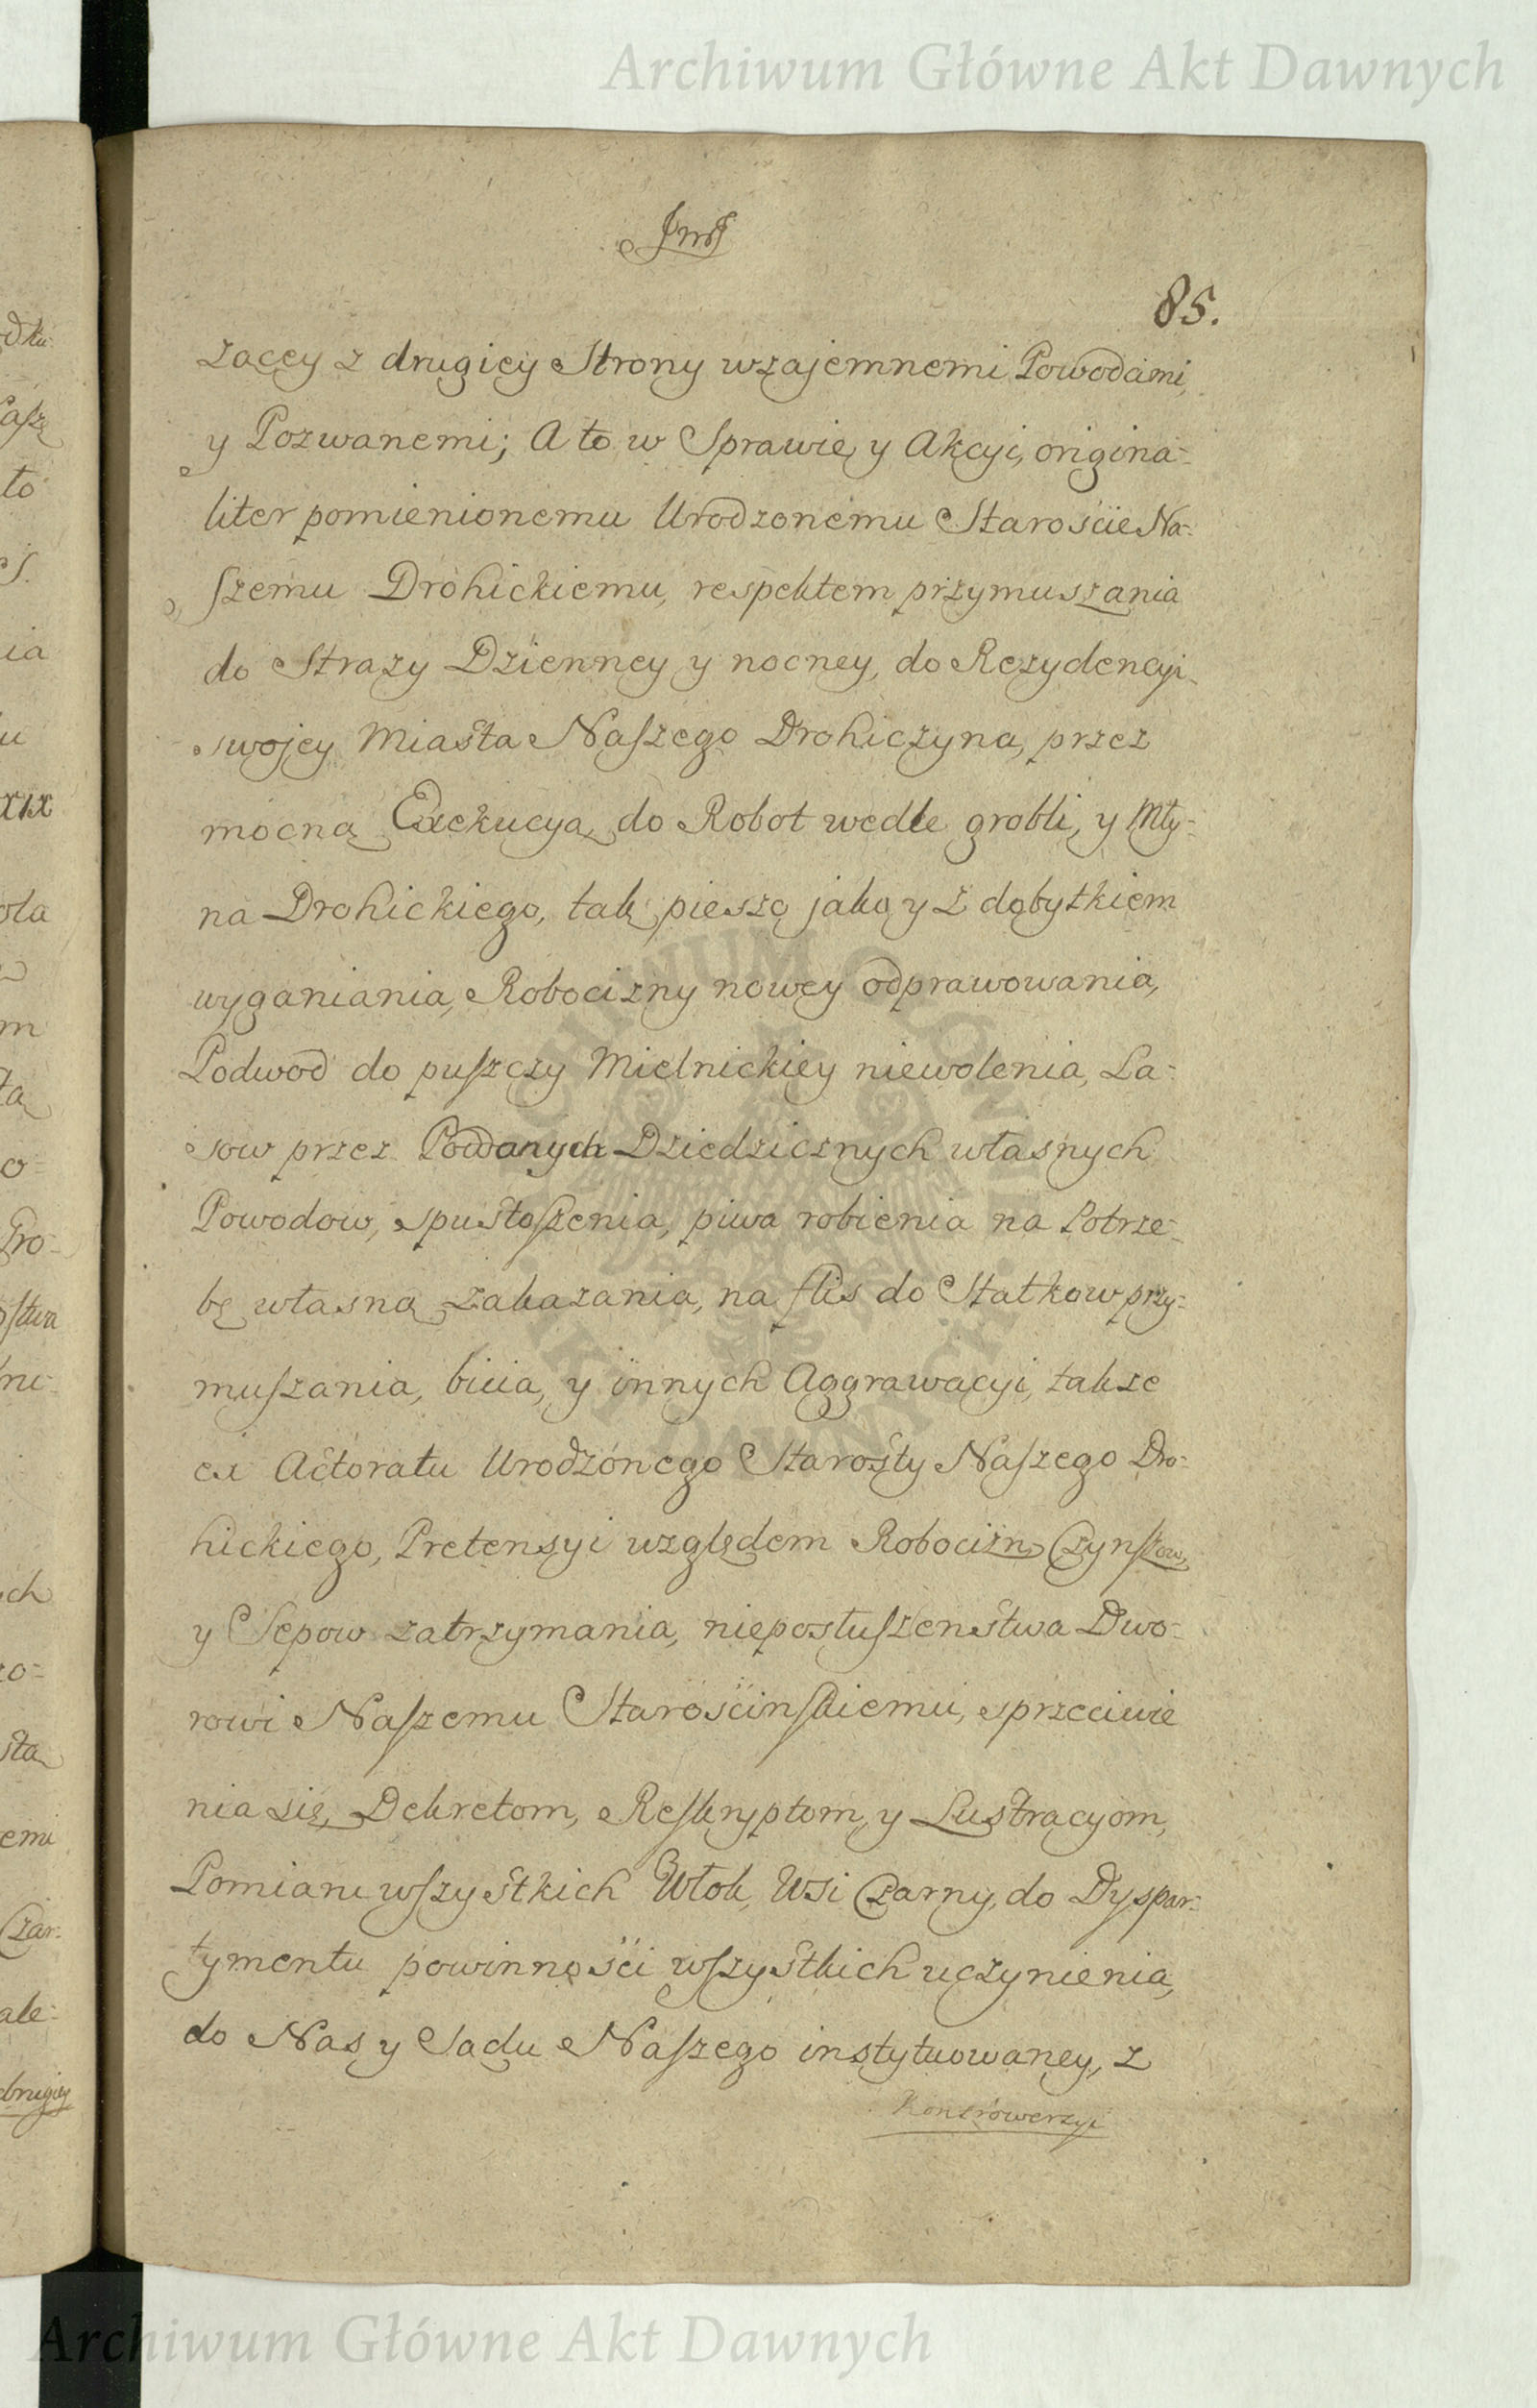 Archiwum Główne Akt Dawnych
85.
zacey z drugiey Strony wzajemnemi Powodami,
y Pozwanemi; A to w Sprawie y Akcyi, origina-
liter pomienionemu Urodzonemu Staroscie Na-
szemu Drohickiemu, respektem przymuszania
do Strazy Dzienney y nocney, do Rezydencyi
swojey Miasta Naszego Drohiczyna, przez
mocną Exekucyą, do Robot wedle grobli, y Mły-
na Drohickiego, tak pieszo jako y z dobytkiem
wyganiania, Robocizny nowey odprawowania,
Podwod do puszczy Mielnickiey niewolenia, La-
sow przez Poddanych Dziedzicznych własnych
Powodow, spustoszenia, piwa robienia na Potrze-
bę własną zakazania, na flis do Statkow przy-
muszania, bicia, y innych Aggrawacyi, takze
ex Actoratu Urodzonego Starosty Naszego Dro-
hickiego, Pretensyi względem Robocizn Czynszow,
y Sepow zatrzymania, nieposłuszenstwa Dwo-
rowi Naszemu Staroscinskiemu, sprzeciwie
nia się, Dekretom, Reskryptom, y Lustracyom,
Pomiaru wszystkich Włok, Wsi Czarny, do Dyspar-
tymentu powinnosci wszystkich uczynienia,
do Nas y Sądu Naszego instytuowaney, z
Kontrowersyi
Archiwum Główne Akt Dawnych